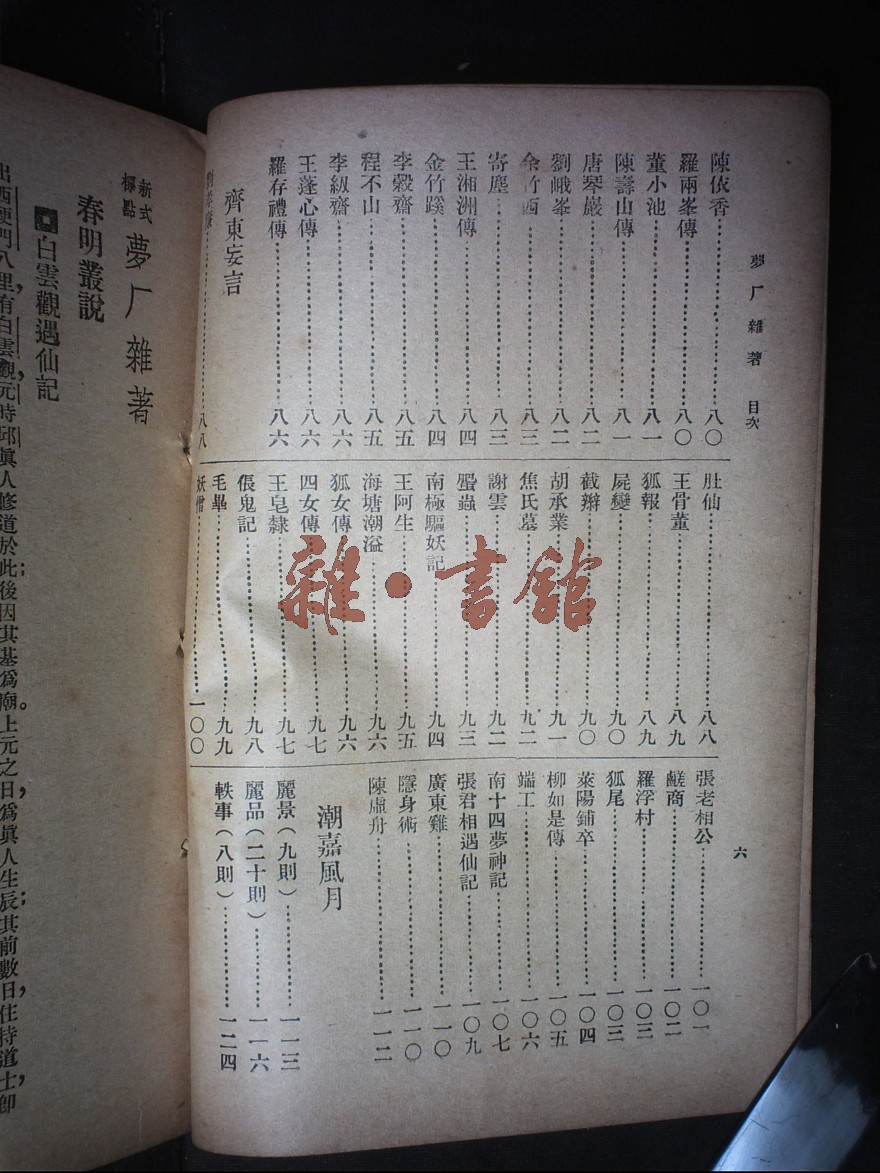 夢厂雜著 目次
六
陳依香⋯⋯八〇
羅兩峯傳⋯⋯八〇
董小池⋯⋯八一
陳壽山傳⋯⋯八一
唐琴巖⋯⋯八二
劉峨峯⋯⋯八二
余竹西⋯⋯八三
寄塵⋯⋯八三
王湘洲傳⋯⋯八四
金竹蹊⋯⋯八四
李穀齋⋯⋯八五
程不山⋯⋯八五
李紱齋⋯⋯八六
王蓬心傳⋯⋯八六
羅存禮傳⋯⋯八六
齊東妄言
⋯⋯八八
肚仙⋯⋯八八
王骨董⋯⋯八九
狐報⋯⋯八九
屍變⋯⋯九〇
截辮⋯⋯九〇
胡承業⋯⋯九一
焦氏墓⋯⋯九二
謝雲⋯⋯九二
蠱⋯⋯九三
南極驅妖記⋯⋯九四
王阿生⋯⋯九五
海塘潮溢⋯⋯九六
狐女傳⋯⋯九六
四女傳⋯⋯九七
王皂隸⋯⋯九七
倀鬼記⋯⋯九八
毛畢⋯⋯九九
妖僧⋯⋯一〇〇
張老相公⋯⋯一〇一
鹺商⋯⋯一〇二
羅浮村⋯⋯一〇三
狐尾⋯⋯一〇三
萊陽鋪卒⋯⋯一〇四
柳如是傳⋯⋯一〇五
端工⋯⋯一〇六
南十四夢神記⋯⋯一〇七
張君相遇仙記⋯⋯一〇九
廣東雞⋯⋯一一〇
隱身術⋯⋯一一〇
陳虛舟⋯⋯一一二
潮嘉風月
麗景（九則）⋯⋯一一三
麗品（二十則）⋯⋯一一六
軼事（八則）⋯⋯一二四
新式標點 夢厂雜著
春明叢說
白雲觀遇仙記
出西便門八里，有白雲觀，元時邱眞人修道於此；後因其基爲廟。上元之日，爲眞人生辰；其前數日，住持道士，卽
雜·書館